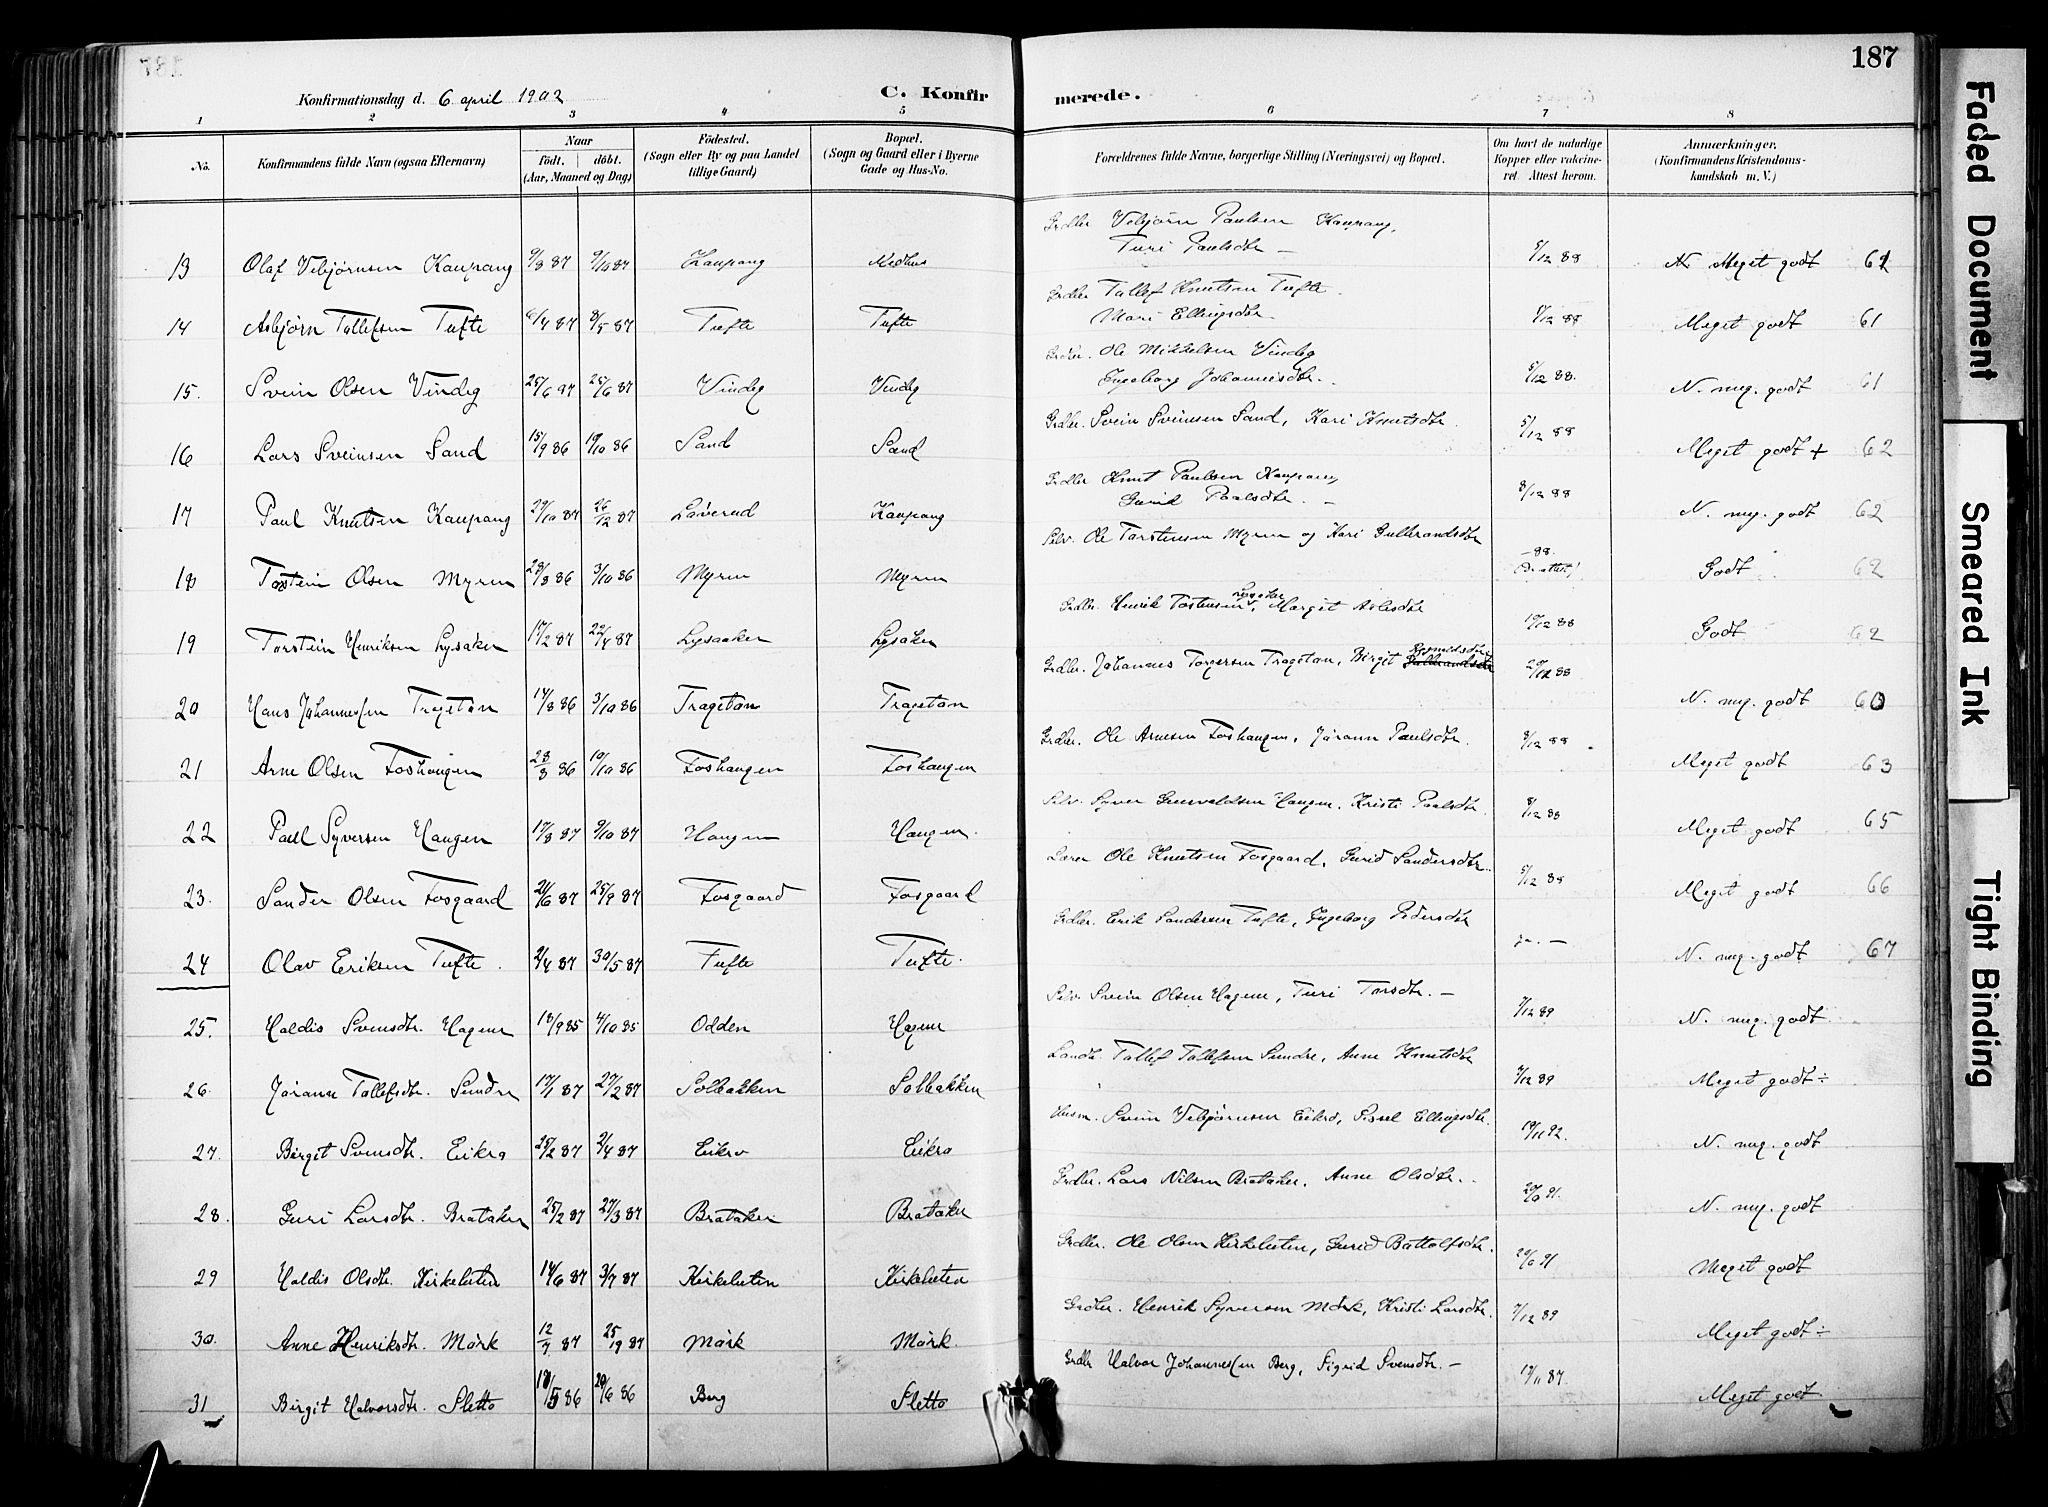 187
Konfirmationsdag d. 6 april 1902
C. Konfirmerede.
1 2 3 4 5 6 7 8
No.
Konfirmandens fulde Navn (ogsaa Efternavn)
Naar
födt. döbt.
(Aar, Maaned og Dag)
Födested.
(Sogn eller By og paa Landet
tillige Gaard)
Bopæl.
(Sogn og Gaard eller i Byerne
Gade og Hus-No.
Forældrenes fulde Navne, borgerlige Stilling (Næringsvei) og Bopæl.
Om havt de naturlige
Kopper eller vaccine-
ret. Attest herom.
Anmærkninger,
(Konfirmandens Kristendoms-
kundskab m. V.)
Grdbr. Vebjørn Paulsen Kaupang,
Turi Paulsdtr —
13 Olaf Vebjørnsen Kaupang 9/8 87 9/10 87 Kaupang Medhus 5/12 88 N. Meget godt 61
Grdbr Tollef Knutsen Tufte.
Mari Ellingsdtr.
14 Asbjørn Tollefsen Tufte 6/4 87 8/5 87 Tufte Tufte Meget godt 61
Grdbr. Ole Mikkelsen Vindeg
Ingeborg Johannesdtr.
15. Svein Olsen Vindeg 25/6 87 Vindeg Vindeg 5/12 88. N. meg. godt 61
Grdbr. Svein Sveinsen Sand, Kari Knutsdtr.
16 Lars Sveinsen Sand 15/9 86 86 Sand Sand 5/12 88 Meget godt + 62
Grdbr Knut Paulsen Kaupang
Gurid Paalsdtr. —
17 Paul Knutsen Kaupang 29/10 87 26/12 87 Løverud Kaupang 8/12 88 N. meg. godt 62
Selv. Ole Torstensen Myren og Kari Gulbrandsdtr
18 Tostein Olsen Myren 28/8 86 3/10 86 Myren Myren — 88. Godt 62
Grdbr. Henrik Tostensen Lysaker, Margit Aslesdtr
19 Torstein Henriksen Lysaker 17/2 87 22/4 87 Lysaaker Lysaker 19/12 88 Godt 62
Grdbr. Johannes Torgersen Trageton, Birgit
20 Hans Johannessen Trageton 14/8 86 3/10 86 Trageton Trageton 20/12 88 N. meg. godt 60
Grdbr. Ole Arnesen Foshaugen, Jørann Paulsdtr.
21 Arne Olsen Foshaugen 23/8 86 10/10 86 Foshaugen Foshaugen 8/12 88 Meget godt 63
Selv. Syver Gunvaldsen Haugen, Kristi Paalsdtr.
22 Paul Syversen Haugen 17/8 87 9/10 87 Haugen Haugen. 8/12 88 Meget godt 65
Lærer Ole Knutsen Fosgaard, Gurid Sandersdtr.
23. Sander Olsen Fosgaard 25/9 87 Fosgaard Fosgaard 5/12 88 Meget godt 66
Grdbr. Erik Sandersen Tufte, Ingeborg Pedersdtr
24 Olav Eriksen Tufte. 2/4 87 30/5 87 Tufte Tufte. ja. — N. meg. godt 67
Selv. Svein Olsen Hagene, Turi Torsdtr. —
25. Haldis Svensdtr. Hagene 18/9 85 4/10 85 Odden Hagene 7/12 89 N. meg. godt
Landh. Tollef Tollefsen Sundre, Anne Knutsdtr
26. Jørann Tollefsdtr. Sundre 17/1 87 27/2 87 Solbakken Solbakken 7/12 89 Meget godt ÷
Husm. Svein Vebjørnsen Eikro, Sissel Ellingsdtr.
27. Birget Svensdtr. Eikro 25/2 87 2/4 87 Eikro Eikro 19/11 92. N. meg. godt
Grdbr. Lars Nilsen Brataker, Anne Olsdtr.
28. Guri Larsdtr. Brataker 25/2 87 27/3 87 Brataker Brataker N. meg. godt
Grdbr. Ole Olsen Kirkeluten, Gurid Bottolfsdtr.
29 Haldis Olsdtr. Kirkeluten 14/6 87 3/7 87 Kirkeluten Kirkeluten 20/6 91 Meget godt
Grdbr. Henrik Syversen Mørk, Kristi Larsdtr.
30. Anne Henriksdtr. Mørk 12/7 87 87 Mørk Mørk. 7/12 89 Meget godt ÷
Grdbr Halvor Johannessen Berg, Sigrid Svensdtr. —
31 Birgit Halvorsdtr. Sletto 18/5 86 20/6 86 Berg Sletto 19/11 87. Meget godt
Faded Document
Smeared Ink
Tight Binding